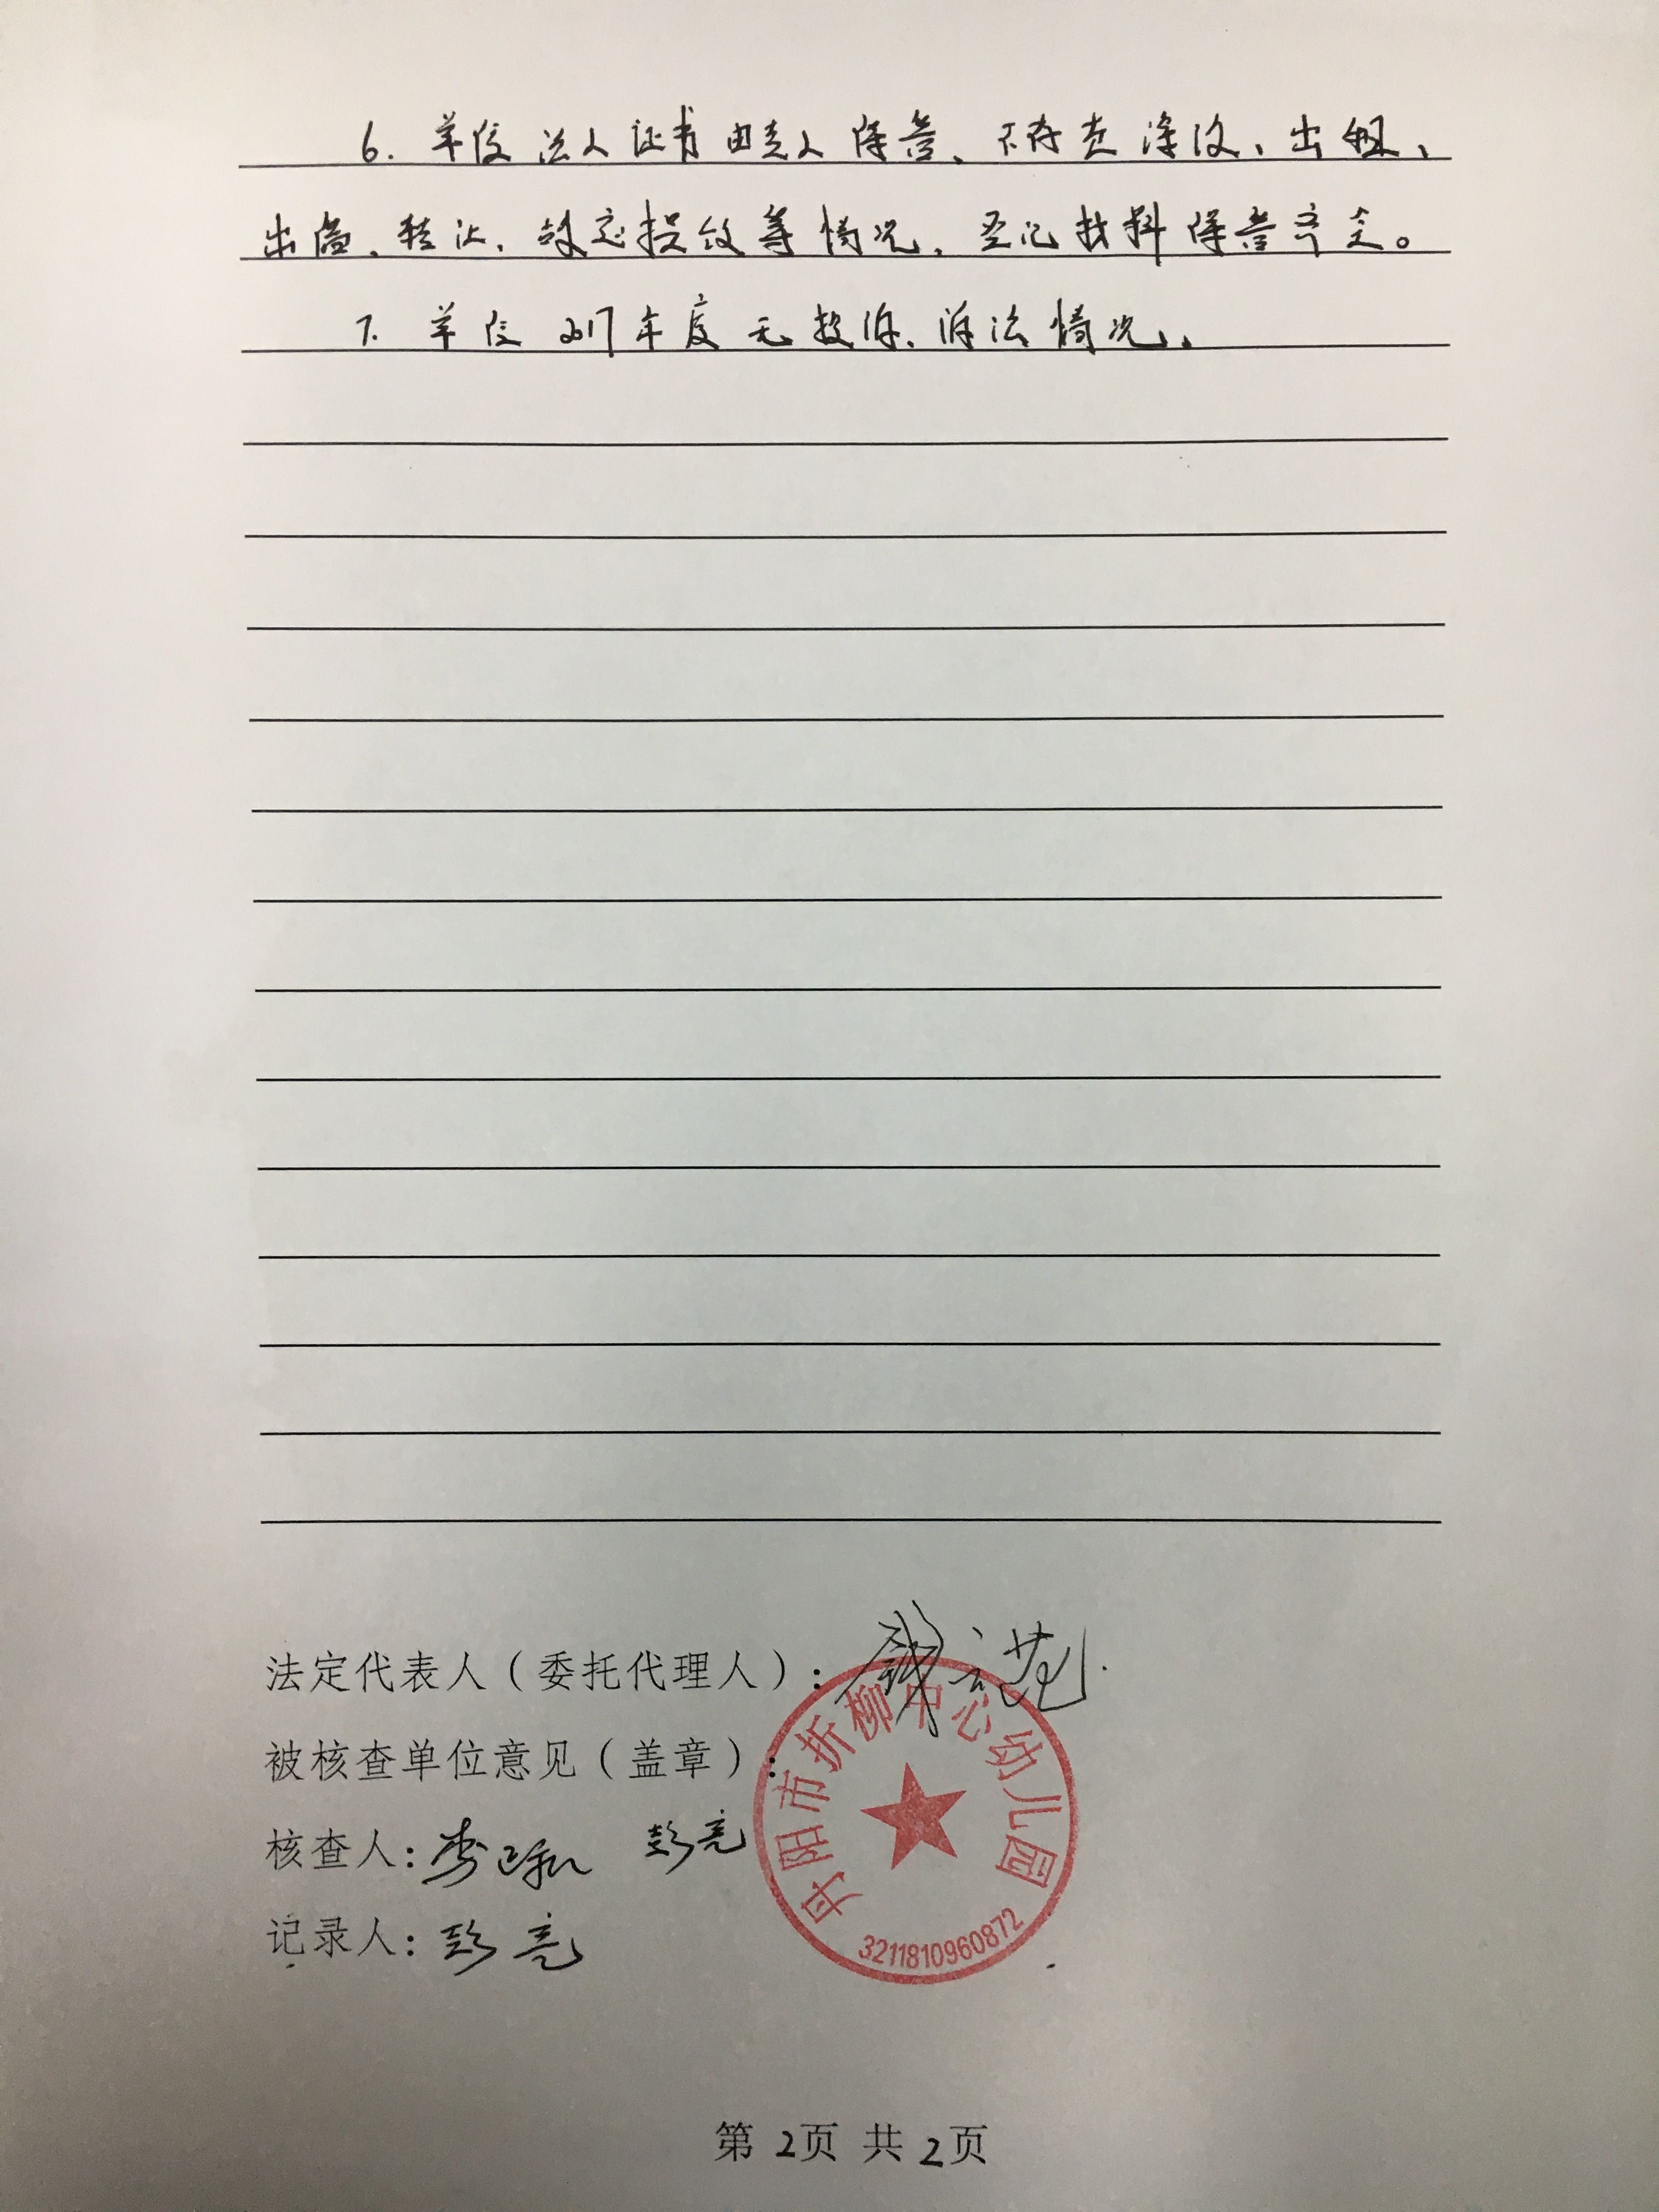 6. 单位法人证书由专人保管、不存在涂改、出租、
出借、转让、故意损毁等情况、登记材料保管齐全。
7. 单位2017年度无投诉、诉讼情况、
法定代表人（委托代理人）：
被核查单位意见（盖章）：
核查人：
彭亮
记录人：彭亮
丹阳市折柳中心幼儿园
3211810960872
第 2页 共 2页